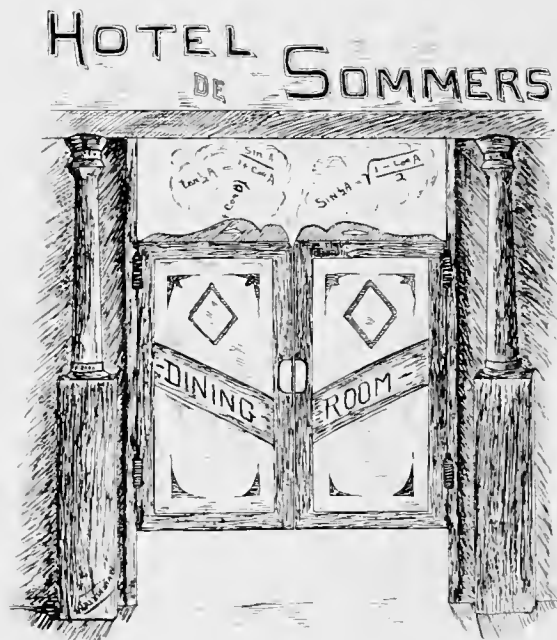 HOTEL
DE SOMMERS
tan ½A = sin A / 1 + cos A
Sin ½A = √ 1 - cos A / 2
-DINING- ROOM-